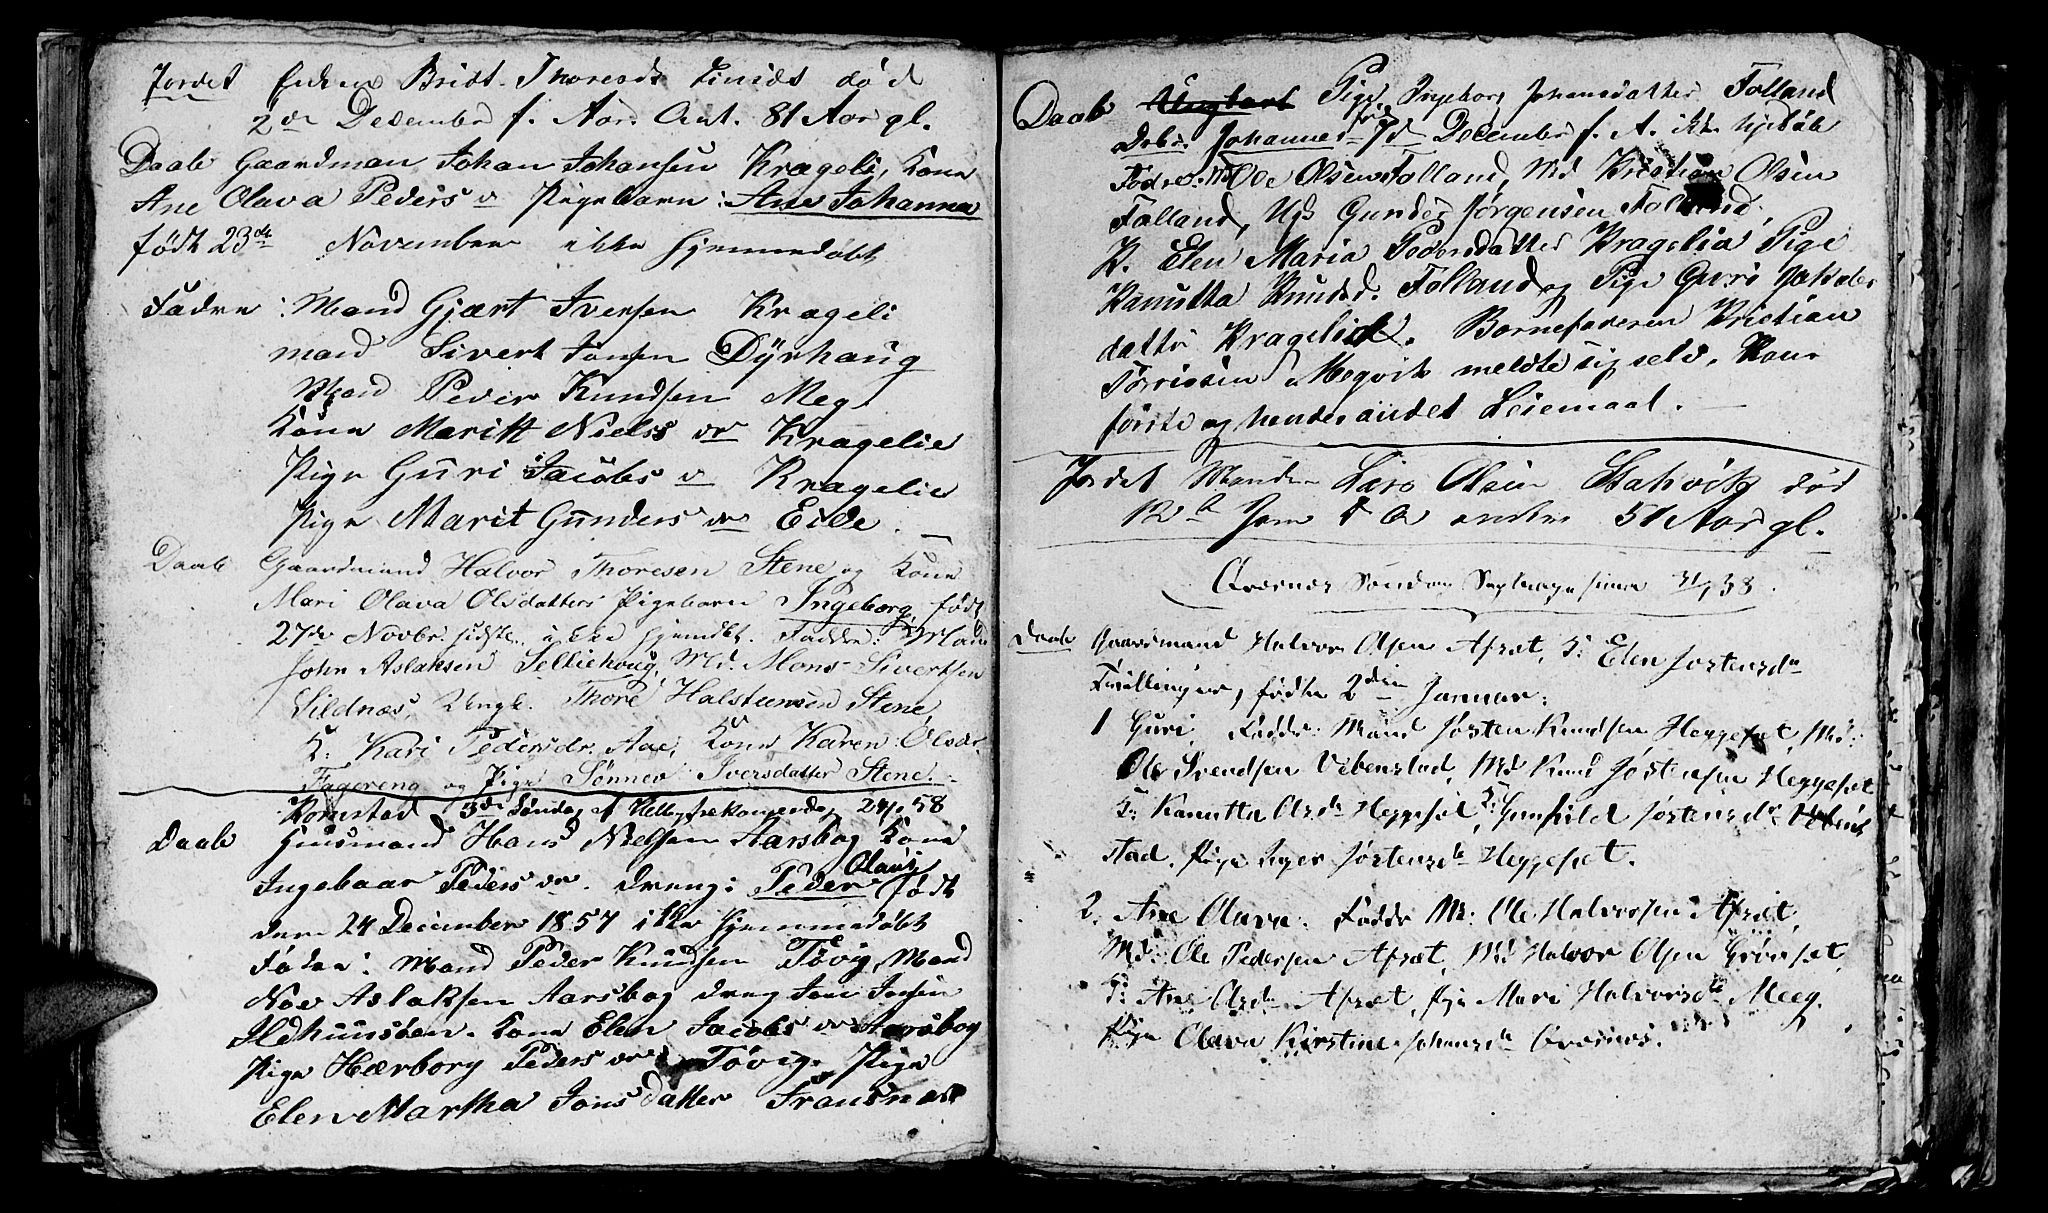 Jordet Enken Bridt. Thoresd død
2den December f. Aar. Ant. 81 Aar gl.
Daab Gaardman Johan Johansen Krageli, Kone
Ane Olava Peders dr Pigebarn: Ane Johanna
født 23de November ikke hjemmedøbt
Fadre: Mand Gjært Iversen Krageli
mand Sivert Jonsen Dÿrhaug
Mand Peder Knudsen Meg
Kone Maritt Niels dr Kragelie
Pige Guri Jacobs d Kragelie
Pige Marit Gunders dr Eide.
Daab Gaardmand Halvor Thoresen Stene og Kone
Mari Olava Olsdatters Pigebarn Ingeborg, født
27de Novbr. sidste, ikke hjemdbt. Faddre: Mand
John Aslaksen Selliehoug, Md. Mons Sivertsen
Sildnæs, Ungk. Thore Halstensen Stene,
K. Kari Pedersdr. Aae, Kone Karen Olsdr.
Fagereng og Pige Sønnev Iversdatter Stene.
Kornstad 3die Søndag af Helligtrekongersdag 24/1 58
Daab Huusmand Hans Nielsen Aarsbog Kone
Ingebaar Peders dr. dreng: Peder Olaus født
den 24 December 1857 ikke hjemmedøbt
Fadre: Mand Peder Knudsen Tøvig, Mand
Noe Aslaksen Aarsbog dreng Jon Jonsen
Ildhuusøen. Kone Elen Jacobs dr Aarsbog
Pige Hærborg Peders dr Tøvig. Pige
Elen Martha Jons datter
Daab Ungkarl Pige Ingeborg Johansdatter Folland
Drbr. Johannes December f. A. ikke hjdøb
Fadre: Md Ole Olsen Folland, Md Kristian Olsen
Folland, Ugk Gunder Jørgensen Folland,
K. Elen Maria Pedersdatter Kragelia Pige
Kanutta Knudsd. Folland og Pige Guri Jakobs
datter Kragelia. Barnefaderen Kristian
Meqvik meldte sig selv. Hans
første og hendes andet Leiemaal.
Jordet Manden Lars Olsen Stahvik død
12te Jan d A 51 Aar gl.
Qværnes Søndag Septuagesima 31/1 58.
Daab Gaardmand Halvor Olsen Afsæt, K: Elen Jostensdr
Tvillinger, fødte 2den Januar:
1 Guri. Faddr: Mand Josten Knudsen Heggeset, Md:
Ole Svendsen Vebenstad, Md Knud Jostensen Heggeset
K: Kanutta Olsdr Heggeset, K: Gunhild Jostensdr Vebens
stad. Pige Inger Jostensdr Heggeset.
2. Ane Olava. Faddr M: Ole Halvorsen Afsæt,
Md: Ole Pedersen Afsæt, Md Halvor Olsen Grønset,
K: Ane Olsdr Afsæt, Pige Mari Halvorsdr Meeg.
Pige Olava Kirstine Johansdr Qværnes.